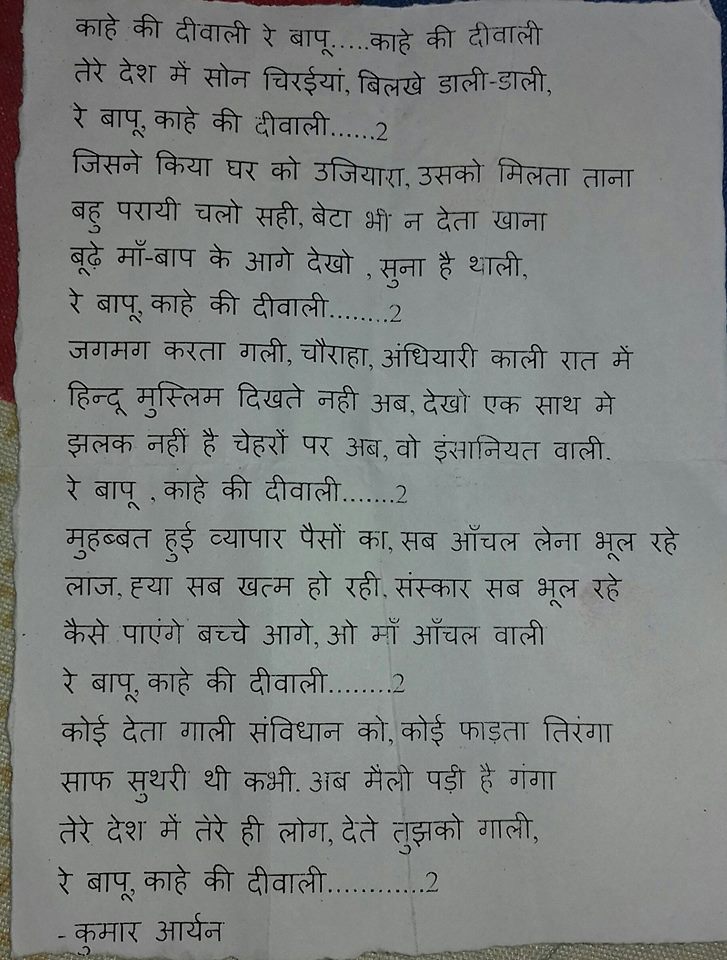 काहे की दीवाली रे बापू.....काहे की दीवाली
तेरे देश में सोन चिरईयां, बिलखे डाली-डाली,
रे बापू, काहे की दीवाली......2
जिसने किया घर को उजियारा, उसको मिलता ताना
बहु परायी चलो सही, बेटा भी न देता खाना
बूढ़े माँ-बाप के आगे देखो , सुना है थाली,
रे बापू, काहे की दीवाली........2
जगमग करता गली, चौराहा, अंधियारी काली रात में
हिन्दू मुस्लिम दिखते नही अब, देखो एक साथ मे
झलक नहीं है चेहरों पर अब, वो इंसानियत वाली.
रे बापू , काहे की दीवाली.......2
मुहब्बत हुई व्यापार पैसों का, सब आँचल लेना भूल रहे
लाज, ह्या सब खत्म हो रही. संस्कार सब भूल रहे
कैसे पाएंगे बच्चे आगे, ओ माँ आँचल वाली
रे बापू, काहे की दीवाली........2
कोई देता गाली संविधान को, कोई फाड़ता तिरंगा
साफ सुथरी थी कभी. अब मैली पड़ी है गंगा
तेरे देश में तेरे ही लोग, देते तुझको गाली,
रे बापू, काहे की दीवाली............2
- कुमार आर्यन